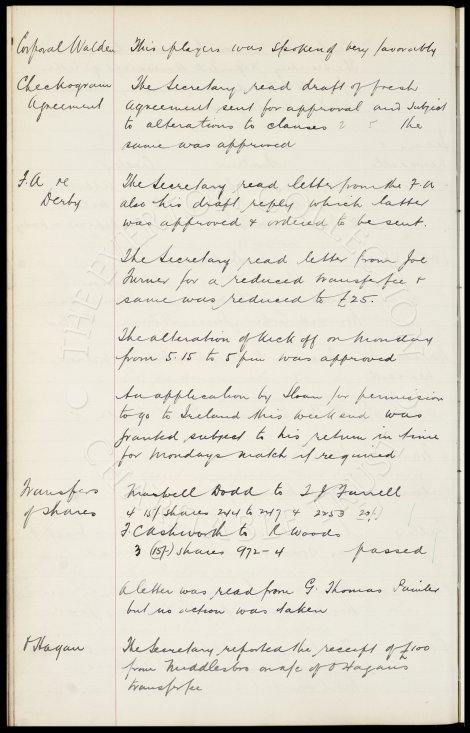 Corporal Walden This players was spoken of very favorably
Checkogram The Secretary read draft of fresh
Agreement agreement sent for approval and subject
to alterations to clauses 2 5 the
same was approved
F.A re The Secretary read letter from the F.A.
Derby also his draft reply which latter
was approved & ordered to be sent.
The Secretary read letter from Joe
Turner for a reduced transfer fee &
same was reduced to £25.
The alteration of kick off on Monday
from 5.15 to 5 pm was approved
An application by Sloan for permission
to go to Ireland this weekend was
granted subject to his return in time
for Mondays match if required
Transfers Maxwell Dodd to T J Farrell
of shares 4 15/- shares 244 to 247 & 2253
F.C Ashworth to R Woods
3 (15/-) shares 972-4 passed
A letter was read from G. Thomas Painter
but no action was taken
O Hagan The Secretary reported the receipt of £100
from Middlesbro on a/c of O Hagans
transfer fee
THE EVERTON COLLECTION